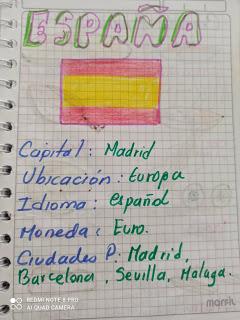 ESPAÑA
Capital: Madrid
Ubicación: Europa
Idioma: español
Moneda: Euro.
Ciudades P: Madrid,
Barcelona, Sevilla, Malaga.
marfil
REDMI NOTE 8 PRO
AI QUAD CAMERA